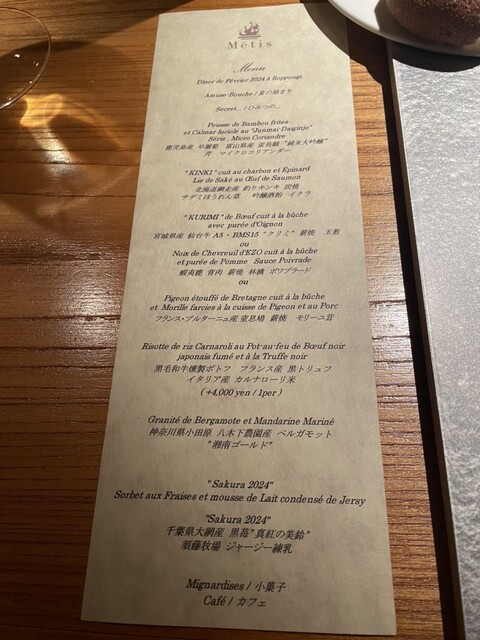 Métis
Menu
Dîner de Février 2024 à Roppongi
Amuse-Bouche / 宴の始まり
Secret... / ひみつの...
Pousse de Bambou frites
et Calmar luciole au "Junmai-Daiginjo"
Séric, Micro Coriandre
鹿児島産 早堀筍 富山県産 蛍烏賊 "純米大吟醸"
芹 マイクロコリアンダー
"KINKI" cuit au charbon et Epinard
Lie de Saké au Œuf de Saumon
北海道網走産 釣りキンキ 炭焼
チヂミほうれん草 吟醸酒粕 イクラ
"KURIMI" de Bœuf cuit à la bûche
avec purée d'Oignon
宮城県産 仙台牛 A5・BMS15 "クリミ" 薪焼 玉葱
ou
Noix de Chevreuil d'EZO cuit à la bûche
et purée de Pomme Sauce Poivrade
蝦夷鹿 背肉 薪焼 林檎 ポワブラード
ou
Pigeon étouffé de Bretagne cuit à la bûche
et Morille farcies à la cuisse de Pigeon et au Porc
フランス・ブルターニュ産 窒息鳩 薪焼 モリーユ茸
Risotte de riz Carnaroli au Pot-au-feu de Bœuf noir
japonais fumé et à la Truffe noir
黒毛和牛燻製ポトフ フランス産 黒トリュフ
イタリア産 カルナローリ米
(+4,000 yen / 1per)
Granité de Bergamote et Mandarine Mariné
神奈川県小田原 八木下農園産 ベルガモット
"湘南ゴールド"
"Sakura 2024"
Sorbet aux Fraises et mousse de Lait condensé de Jersy
"Sakura 2024"
千葉県大網産 黒苺"真紅の美鈴"
須藤牧場 ジャージー練乳
Mignardises / 小菓子
Café / カフェ